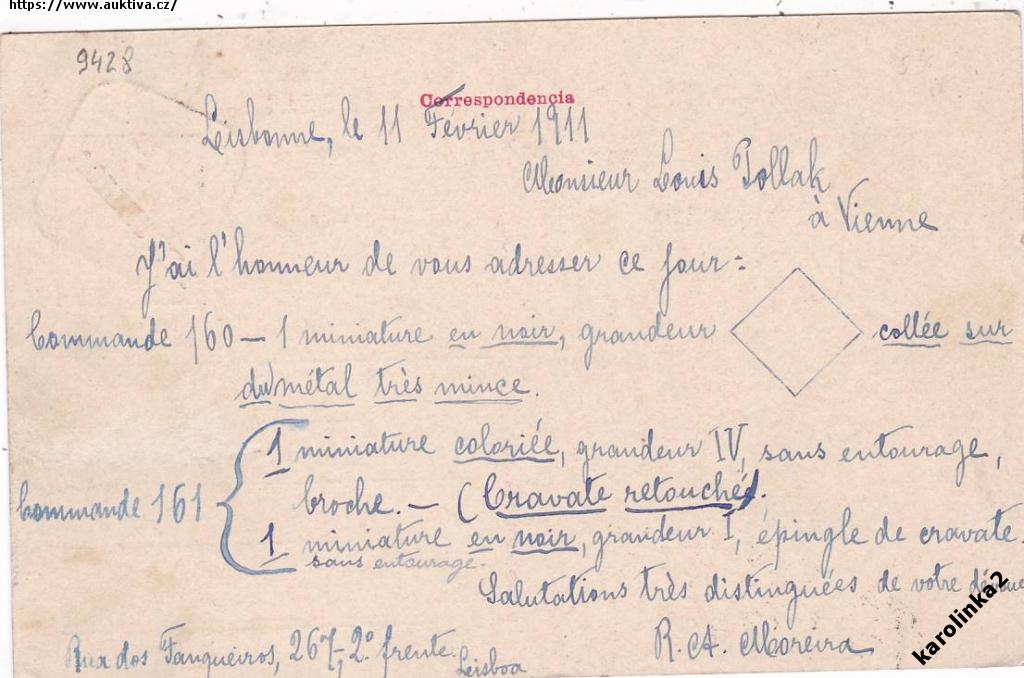 https://www.auktiva.cz/
9428
Correspondencia
Lisbonne, le 11 Février 1911
Monsieur Louis Pollak
à Vienne
J'ai l'honneur de vous adresser ce jour:
Commande 160 — 1 miniature en noir, grandeur collée sur
du métal très mince.
1 miniature coloriée, grandeur IV, sans entourage,
Commande 161
broche. — (Cravate retouchée).
1 miniature en noir, grandeur I, épingle de cravate.
sans entourage.
Salutations très distinguées de votre dévoué
R. A. Moreira
Rua dos Fanqueiros, 267, 2º frente.
Lisboa
karolinka2